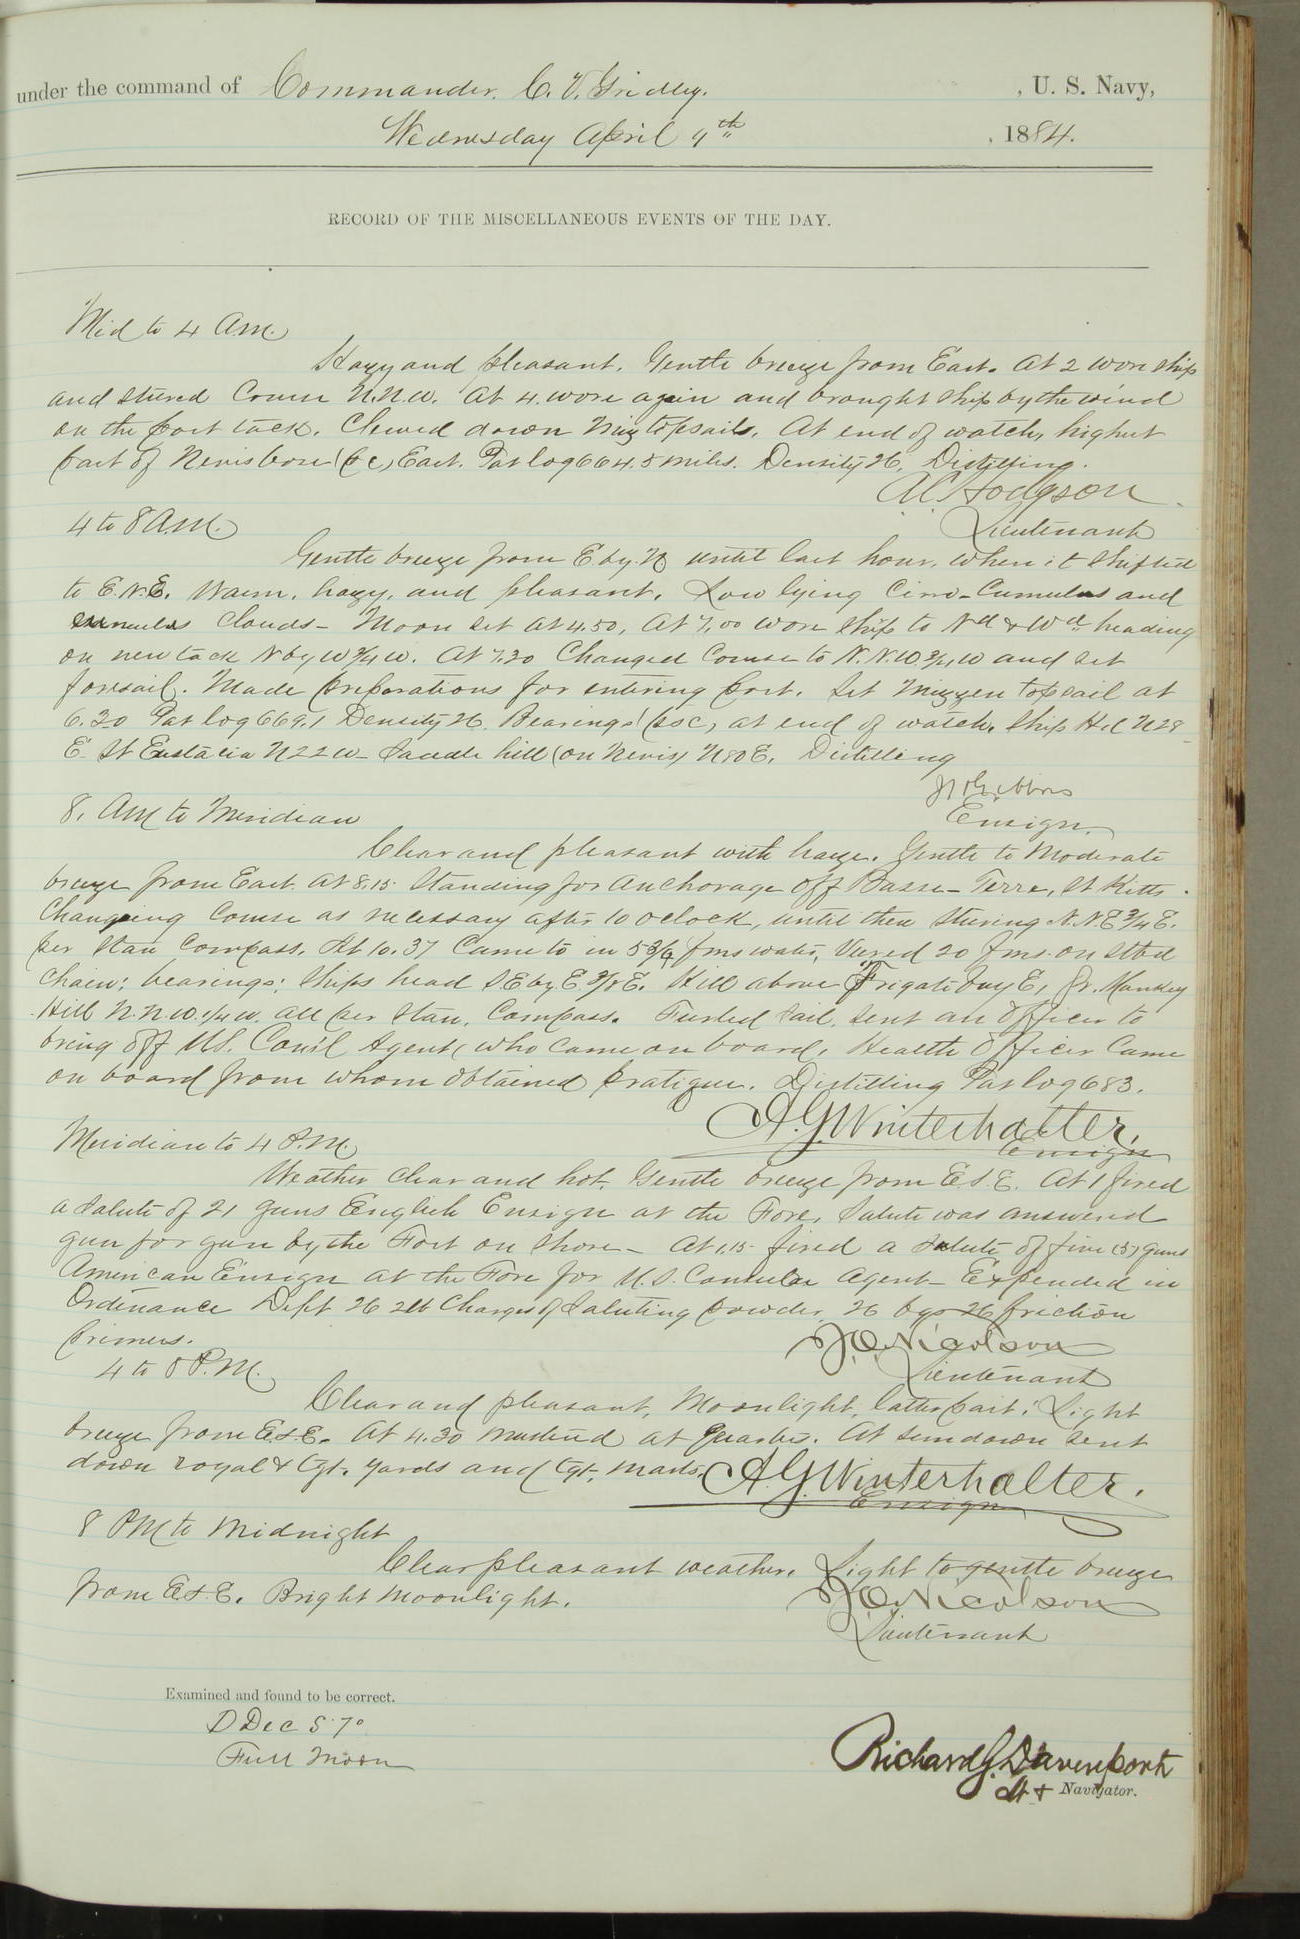 under the command of Commander. C. V. Gridley. , U. S. Navy,
Wednesday April 9th , 1884.
RECORD OF THE MISCELLANEOUS EVENTS OF THE DAY.
Mid to 4 A.M.
Hazy and pleasant. Gentle breeze from East. At 2 wore ship
and steered Course N.N.W. At 4. wore again and brought ship by the wind
on the port tack. Clewed down Miz topsails. At end of watch, highest
part of Nevis bore (p c) East. Pat log 664.5 miles. Density 26. Distilling.
A.C. Hodgson
Lieutenant
4 to 8 A.M.
Gentle breeze from E by N until last hour. when it shifted
to E.N.E. Warm, hazy, and pleasant. Low lying Cirro-Cumulus and
cumulus clouds - Moon set at 4.50, At 7.00 wore ship to Nd & Wd heading
on new tack N by W 3/4 W. At 7.20 Changed Course to N.N.W. 3/4 W and set
foresail. Made preparations for entering port. Set Mizzen topsail at
6.20 Pat log 669.1 Density 26. Bearings (psc) at end of watch. Ship Hd N28
E St Eustatia N22W - Saddle hill (on Nevis) N80E. Distilling
Ensign.
8. AM to Meridian
Clear and pleasant with haze. Gentle to Moderate
breeze from East. At 8.15 Standing for anchorage off Basse-Terre, St Kitts.
Changing Course as necessary after 10 oclock, until then steering N.N.E 3/4 E.
per Stan Compass. At 10.37 Came to in 5 3/4 fms water, Veered 20 fms. on Stbd
chain; bearings: Ships head SE by E 3/8 E. Hill above Frigate Bay E, Gr. Monkey
Hill N.N.W. 1/4 W. all per Stan. Compass. Furled sail. Sent an officer to
bring off U.S. Cons'l Agent, who came on board. Health Officer Came
on board from whom obtained pratique. Distilling Pat log 683.
A. G. Winterhalter.
Ensign
Meridian to 4 P.M.
Weather clear and hot. Gentle breeze from E.S.E. At 1 fired
a salute of 21 guns English Ensign at the Fore, Salute was answered
gun for gun by the Fort on shore - At 1.15 fired a salute of five (5) guns
American Ensign at the Fore for U.S. Consular Agent - Expended in
Ordinance Dept 26 2 lb Charges of Saluting powder, 26 bgs 26 friction
primers.
J. O. Nicolson
Lieutenant
4 to 8 P.M.
Clear and pleasant, Moonlight, latter part. Light
breeze from E.S.E. At 4.30 mustered at Quarters. At sundown sent
down royal & tgt. yards and tgt. masts.
A. G. Winterhalter.
Ensign
8 PM to Midnight
Clear pleasant weather. Light to gentle breeze
from E.S.E. Bright Moonlight.
J. O. Nicolson
Lieutenant
Examined and found to be correct.
D Dec S 7°
Full Moon
Richard G. Davenport
Lt & Navigator.